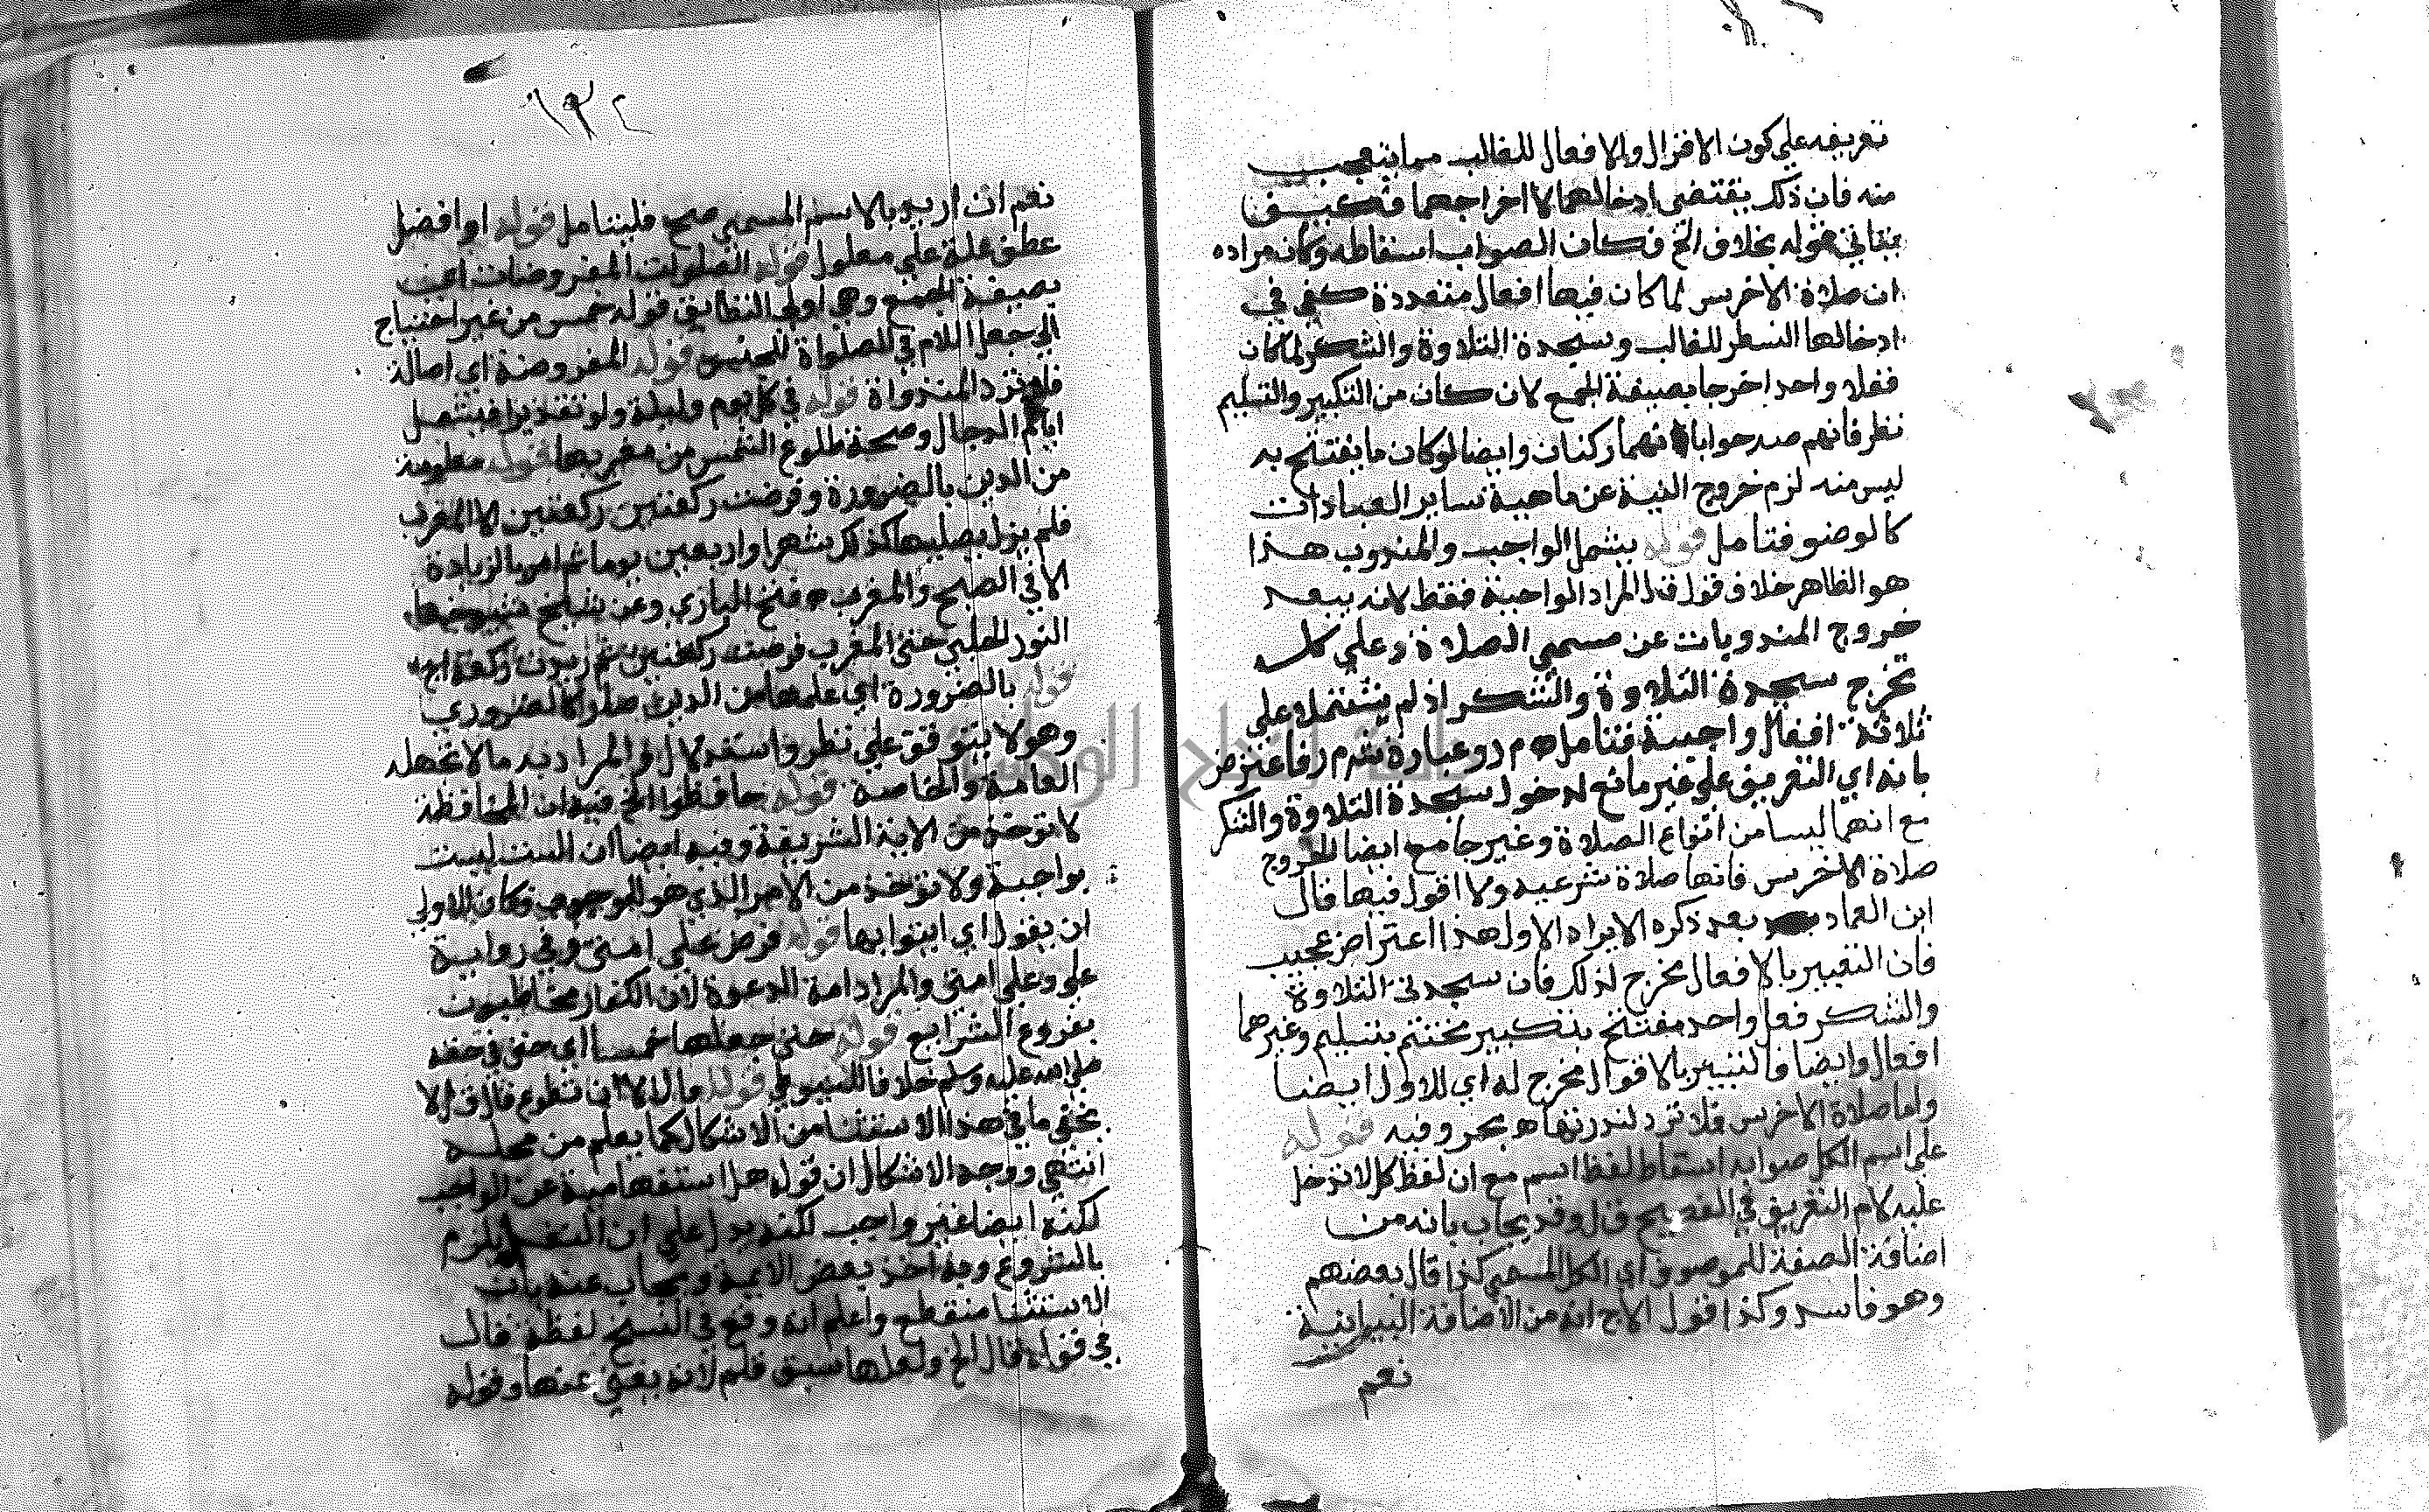 تعريفه علي كون الاقوال والافعال للغالب مما يتعجب
منه فان ذلك يقتضي ادخالهما لا اخراجهما فكيف
ينافي قوله بخلاف الخ فكان الصواب اسقاطه وكان مراده
ان صلاة الاخرس لما كان فيها افعال متعددة كفي في
ادخالها النظر للغالب وسجدة التلاوة والشكر لما كان
فعلا واحدا خرجا بصيغة الجمع لان كان من التكبير والتسليم
نظر فانهم صرحوا بانهما ركنان وايضا لو كان ما يفتتح به
ليس منه لزم خروج النية عن ماهية ساير العبادات
كالوضو فتامل قوله يشمل الواجب والمندوب هذا
هو الظاهر خلاف قول ق ل المراد الواجبة فقط لانه يبعد
خروج المندوبات عن مسمي الصلاة وعلي كل
تخرج سجدة التلاوة والشكر اذ لم يشتملا علي
ثلاثة افعال واجبة فتامل وعبارة شرم ر فاعترض
بانه اي التعريف علي غير مانع لدخول سجدة التلاوة والشكر
مع انهما ليسا من انواع الصلاة وغير جامع ايضا لخروج
صلاة الاخرس فانها صلاة شرعية ولا اقول فيها قال
ابن العماد بعد ذكره الايراد الاول هذا اعتراض عجيب
فان التعبير بالافعال مخرج لذلك فان سجدتي التلاوة
والشكر فعل واحد مفتتح بتكبير مختتم بتسليم وغيرهما
افعال وايضا فالتعبير بالاقوال مخرج له اي للاول ايضا
واما صلاة الاخرس فلا ترد لندرتها اه بحروفه قوله
علي اسم الكل صوابه اسقاط لفظ اسم مع ان لفظ كل لا تدخل
عليه لام التعريف في الفصيح ق ل وقد يجاب بانه من
اضافة الصفة للموصوف اي الكل المسمي كذا قال بعضهم
وهو فاسد وكذا قول الاج انه من الاضافة البيانية
نعم
١٣٤
نعم ان اريد بالاسم المسمي صح فليتامل قوله او افضل
عطف علة علي معلول قوله الصلوات المفروضات اعني
بصيغة الجمع وهي اولي لتطابق قوله خمس من غير احتياج
الي جعل اللام في الصلواة للجنس قوله المفروضة اي اصالة
فلا ترد المنذواة قوله في كل يوم وليلة ولو تقديرا فيشمل
ايام الدجال وصحة طلوع الشمس من مغربها قوله معلومة
من الدين بالضرورة وفرضت ركعتين ركعتين الا المغرب
فلم يزل يصليها كذلك شهرا واربعين يوما ثم امر بالزيادة
الا في الصبح والمغرب اه فتح الباري وعن شيخ شيوخنا
النور الحلبي حتي المغرب فرضت ركعتين ثم زيدت ركعة اج
قوله بالضرورة اي علمها من الدين صار كالضروري
وهو لا يتوقف علي نظر واستدلال ق ل المراد به ما لا تجهله
العامة والخاصة قوله حافظوا الخ فيه ان المحافظة
لا تؤخذ من الاية الشريفة وفيه ايضا ان الست ليست
بواجبة ولا تؤخذ من الامر الذي هو للوجوب فكان الاولي
ان يقول اي ايتوا بها قوله فرض علي امتي وفي رواية
علي وعلي امتي والمراد امة الدعوة لان الكفار مخاطبون
بفروع الشرايع قوله حتي جعلها خمسا اي حتي في حقه
صلي الله عليه وسلم خلافا للسيوطي قوله قال لا الا ان تطوع قال ق ل لا
يخفي ما في هذا الاستثنا من الاشكال كما يعلم من محله
انتهي ووجه الاشكال ان قوله هل استفهامية عن الواجب
لكنه ايضا غير واجب لكنه يدل علي ان النفل يلزم
بالشروع وبه اخذ بعض الايمة ويجاب عنه بان
الاستثنا منقطع واعلم انه وقع في النسخ لفظة قال
في قوله فقال الخ ولعلها سبق قلم لانه يغني عنها وقوله